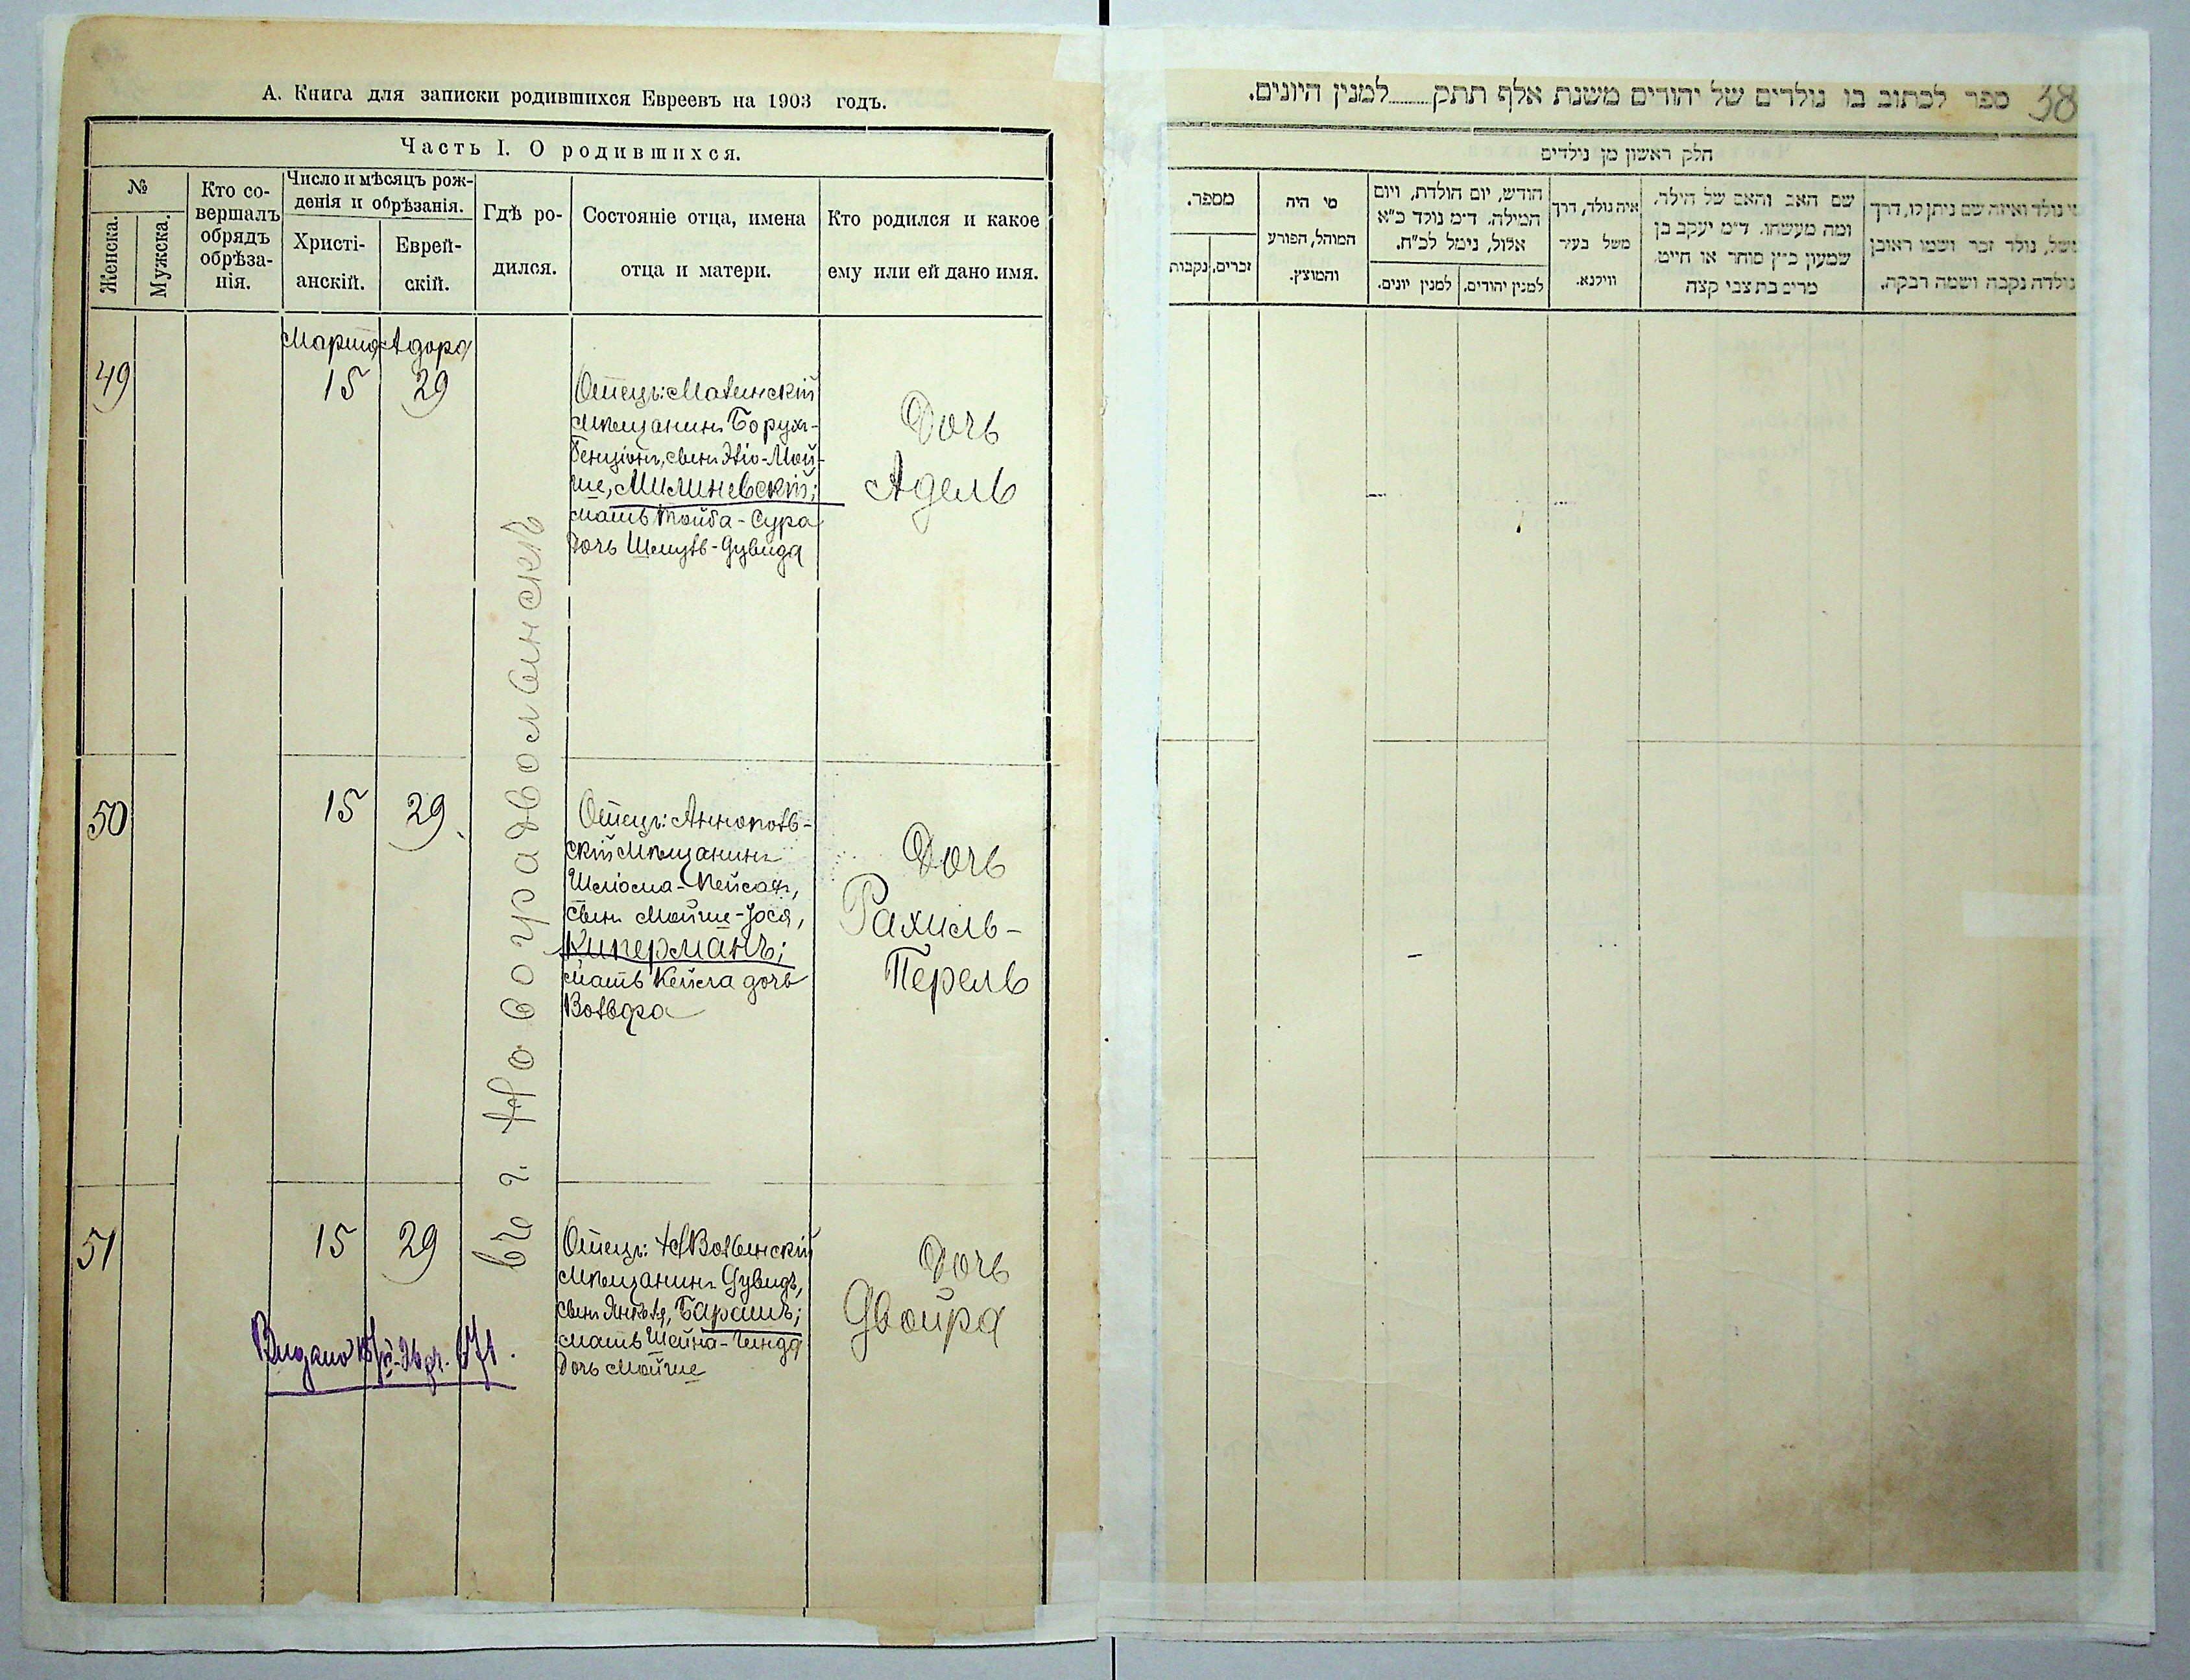 А. Книга для записки родившихся Евреевъ на 1903 годъ.
Часть I. О родившихся.
№
Женска.
Мужска.
Кто со-
вершалъ
обрядъ
обрѣза-
нія.
Число и мѣсяцъ рож-
денія и обрѣзанія.
Христі-
анскій.
Еврей-
скій.
Гдѣ ро-
дился.
Состояніе отца, имена
отца и матери.
Кто родился и какое
ему или ей дано имя.
Марта Адора
49
15
29
Отецъ:
мѣщанинъ Борухъ-
Бенціонъ, сынъ Мой-
ше, Милиневскій;
мать Тойба-Сура
дочь Шмуль-Дувида
Дочь
Адель
въ г. Новоградволынскѣ
50
15
29
Отецъ: Аннополь-
скій мѣщанинъ
Шлiома-Пейсахъ,
сынъ Мойше-Іося,
Киперманъ;
мать Кейла дочь
Вольфа
Дочь
Рахиль-
Перель
51
15
29
Отецъ: НВолынскій
мѣщанинъ Дувидъ,
сынъ Янкеля, Барашъ;
мать Шейна-Гинда
дочь Мойше
Дочь
Двойра
Видано
671.
ספר לכתוב בו נולדים של יהודים משנת אלף תתק......למנין היונים.
38
חלק ראשון מן נולדים
מספר.
זכרים.
נקבות
מי היה
המוהל, הפורע
והמוצץ.
חודש, יום הולדת, ויום
המילה. ד"מ נולד כ"א
אלול, נימל לכ"ח.
למנין יונים.
למנין יהודים.
איה נולד, דרך
משל בעיר
ווילנא.
שם האב והאם של הילד.
ומה מעשהו. ד"מ יעקב בן
שמעון כ"ץ סוחר או חייט.
מרים בת צבי קצה
מי נולד ואיזה שם ניתן לו, דרך
משל, נולד זכר ושמו ראובן
נולדה נקבה ושמה רבקה.